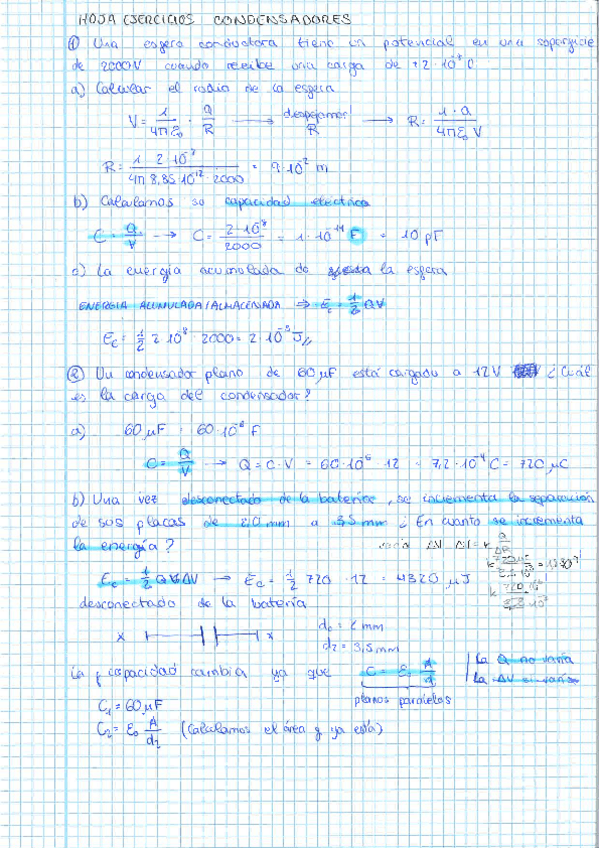 HOJA EJERCICIOS CONDENSADORES
① Una esfera conductora tiene un potencial en una superficie
de 2000V cuando recibe una carga de +2·10⁻⁸ C
a) Calcular el radio de la esfera
V = 1/4πε₀ · Q/R → despejamos! R → R = 1·Q/4πε₀ V
R = 1 · 2·10⁻⁸/4π 8,85·10⁻¹² · 2000 = 9·10⁻² m
b) Calculamos su capacidad eléctrica
C = Q/V → C = 2·10⁻⁸/2000 = 1·10⁻¹¹ F = 10 pF
c) La energía acumulada de la esfera
ENERGIA ACUMULADA/ALMACENADA ⇒ Ec = 1/2 QV
Ec = 1/2 2·10⁻⁸ · 2000 = 2·10⁻⁵ J//
② Un condensador plano de 60 µF está cargado a 12V ¿Cuál
es la carga del condensador?
a) 60 µF = 60·10⁻⁶ F
C = Q/V → Q = C·V = 60·10⁻⁶ · 12 = 7,2·10⁻⁴ C = 720 µC
b) Una vez desconectado de la batería, se incrementa la separación
de sus placas de 2,0 mm a 3,5 mm ¿En cuanto se incrementa
la energía?
Ec = 1/2 Q ΔV → Ec = 1/2 720 · 12 = 4320 µJ
desconectado de la batería
x x
d₁ = 2 mm
d₂ = 3,5 mm
La capacidad cambia ya que C = ε₀ A/d
La Q no varía
La ΔV si varía
planos paralelos
C₁ = 60 µF
C₂ = ε₀ A/d₂ (Calculamos el área y ya está)